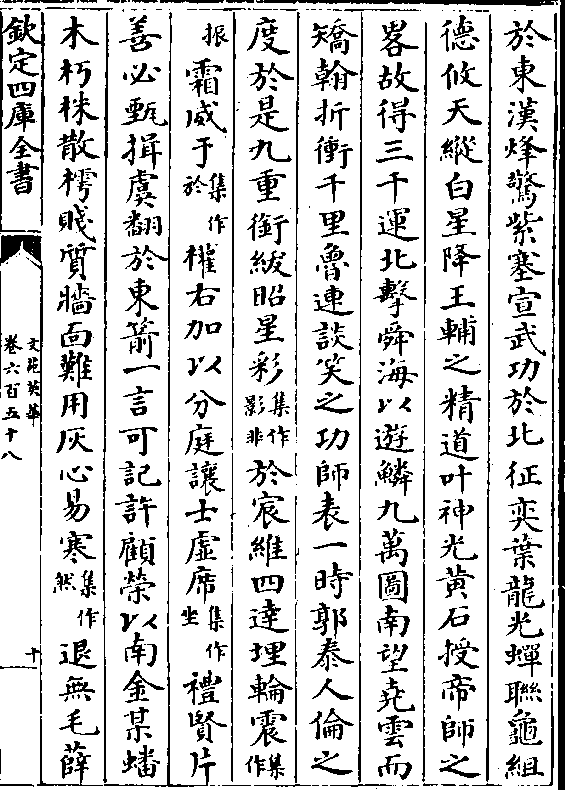 於東漢烽驚紫塞宣武功於北征奕葉龍光蟬聯龜組
德攸天縱白星降王輔之精道叶神光黄石授帝師之
畧故得三千運北擊舜海以遊鱗九萬圖南望堯雲而
矯翰折衝千里魯連談笑之功師表一時郭泰人倫之
度於是九重銜紱昭星彩集作影非於宸維四達埋輪震集作
振霜威于集作於權右加以分庭讓士虚席集作坐禮賢片
善必甄揖虞翻於東箭一言可記許顧榮以南金某蟠
木朽株散樗賤質牆面難用灰心易寒集作然退無毛薛
欽定四庫全書
文苑英華
卷六百五十八
十